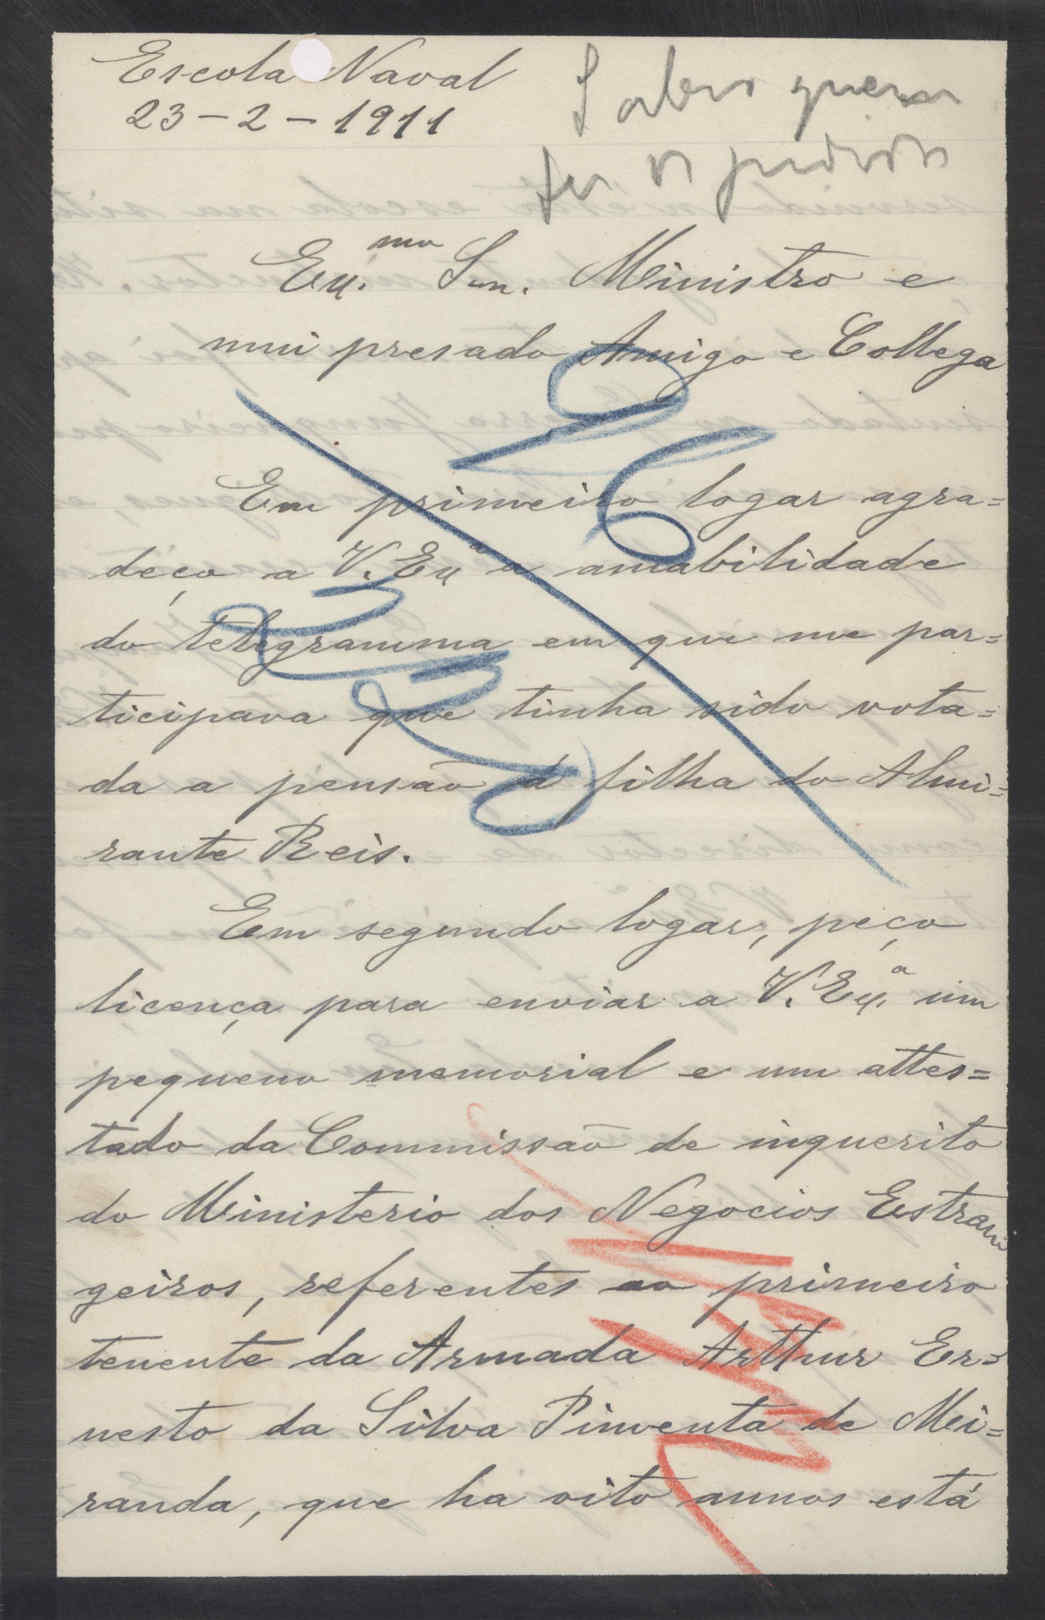 Escola Naval
23-2-1911
Saber quem
fez os pedidos
Ex.mo Snr. Ministro e
mui presado Amigo e Collega
Em primeiro logar agra=
deço a V. Exa a amabilidade
do telegramma em que me par=
ticipava que tinha sido vota=
da a pensão á filha do Almi=
rante Reis.
Em segundo logar, peço
licença para enviar a V. Ex.a um
pequeno memorial e um attes=
tado da Commissão de inquerito
do Ministerio dos Negocios Estran
geiros, referentes ao primeiro
tenente da Armada Arthur Er=
nesto da Silva Pimenta de Mi=
randa, que ha oito annos está